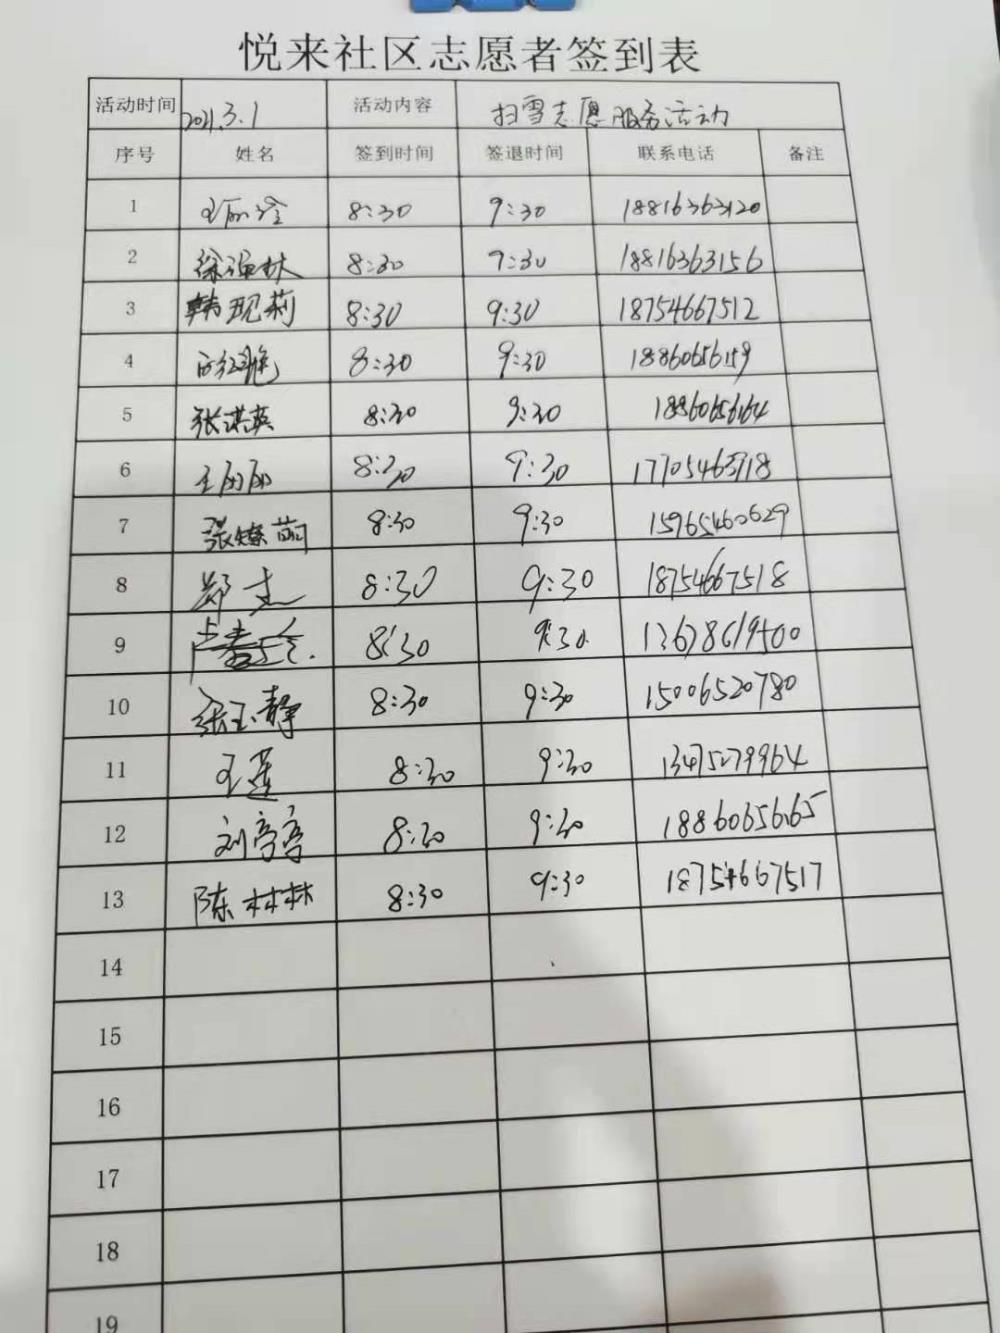 悦来社区志愿者签到表
活动时间 2021.3.1 活动内容 扫雪志愿服务活动
序号 姓名 签到时间 签退时间 联系电话 备注
1 8:30 9:30 18816363120
2 8:30 9:30 18816363156
3 韩现莉 8:30 9:30 18754667512
4 8:30 9:30 18860656159
5 张洪英 8:30 9:30 18860656164
6 王丽丽 8:30 9:30 17705463918
7 8:30 9:30 15965460629
8 郑杰 8:30 9:30 18754667518
9 8:30 9:30
10 张玉静 8:30 9:30 15006520780
11 王莲 8:30 9:30 13475279964
12 刘亭亭 8:30 9:30 18860656165
13 陈林林 8:30 9:30 18754667517
14
15
16
17
18
19